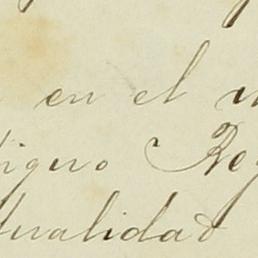 en el
tiguo Reg
tualidad